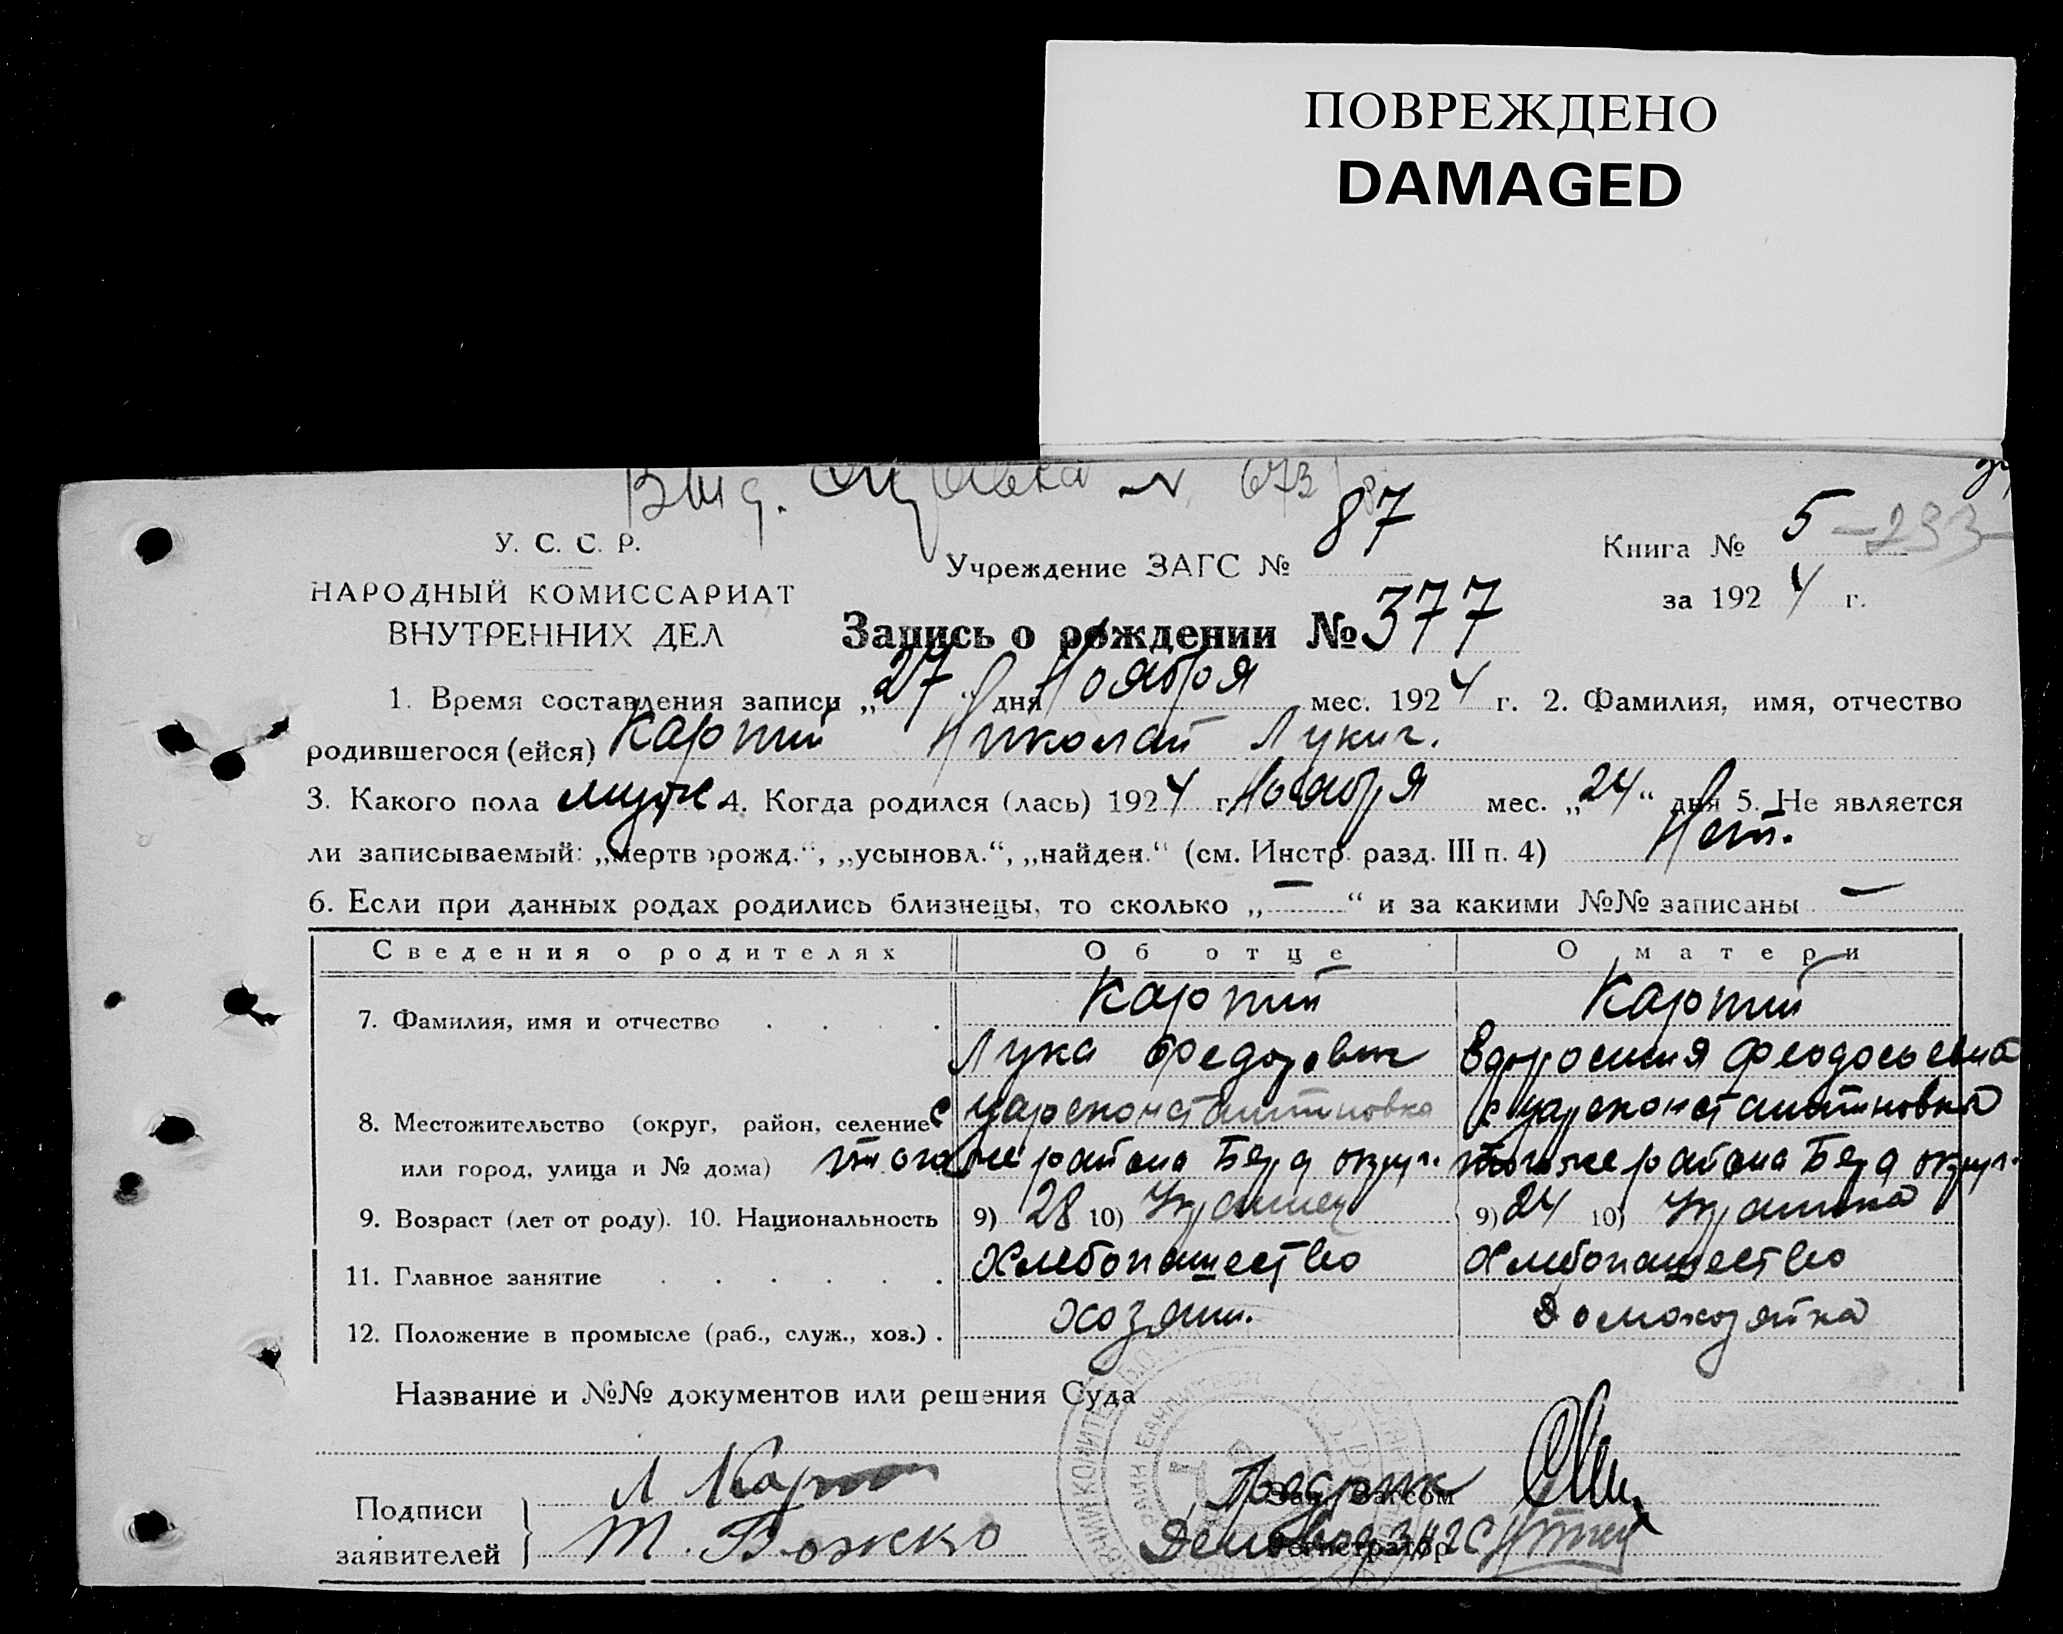 ПОВРЕЖДЕНО
DAMAGED
Выд. N 673
У. С. С. Р.
Учреждение ЗАГС № 87
Книга № 5 -233-
НАРОДНЫЙ КОМИССАРИАТ
за 1924 г.
ВНУТРЕННИХ ДЕЛ
Запись о рождении № 377
1. Время составления записи „27“ дня Ноября мес. 1924 г. 2. Фамилия, имя, отчество
родившегося (ейся) Карпий Николай Лукич.
3. Какого пола муж 4. Когда родился (лась) 1924 г. Ноября мес. „24“ дня 5. Не является
ли записываемый: „мертворожд.“, „усыновл.“, „найден.“ (см. Инстр. разд. III п. 4) Нет.
6. Если при данных родах родились близнецы, то сколько „—“ и за какими №№ записаны —
Сведения о родителях Об отце О матери
7. Фамилия, имя и отчество Карпий Карпий
Лука Федорович Феодосьевна
8. Местожительство (округ, район, селение с Цареконстантиновка с Цареконстантиновка
или город, улица и № дома) того же района Берд округ. того же района Берд округ.
9. Возраст (лет от роду). 10. Национальность 9) 28 10) Украинец 9) 24 10) Украинка
11. Главное занятие Хлебопашество Хлебопашество
12. Положение в промысле (раб., служ., хоз.) Хозяин. Домохозяйка
Название и №№ документов или решения Суда
Подписи
заявителей
Л Карпий
Т. Божко
Предрик
Зав. Загсом
Регистратор